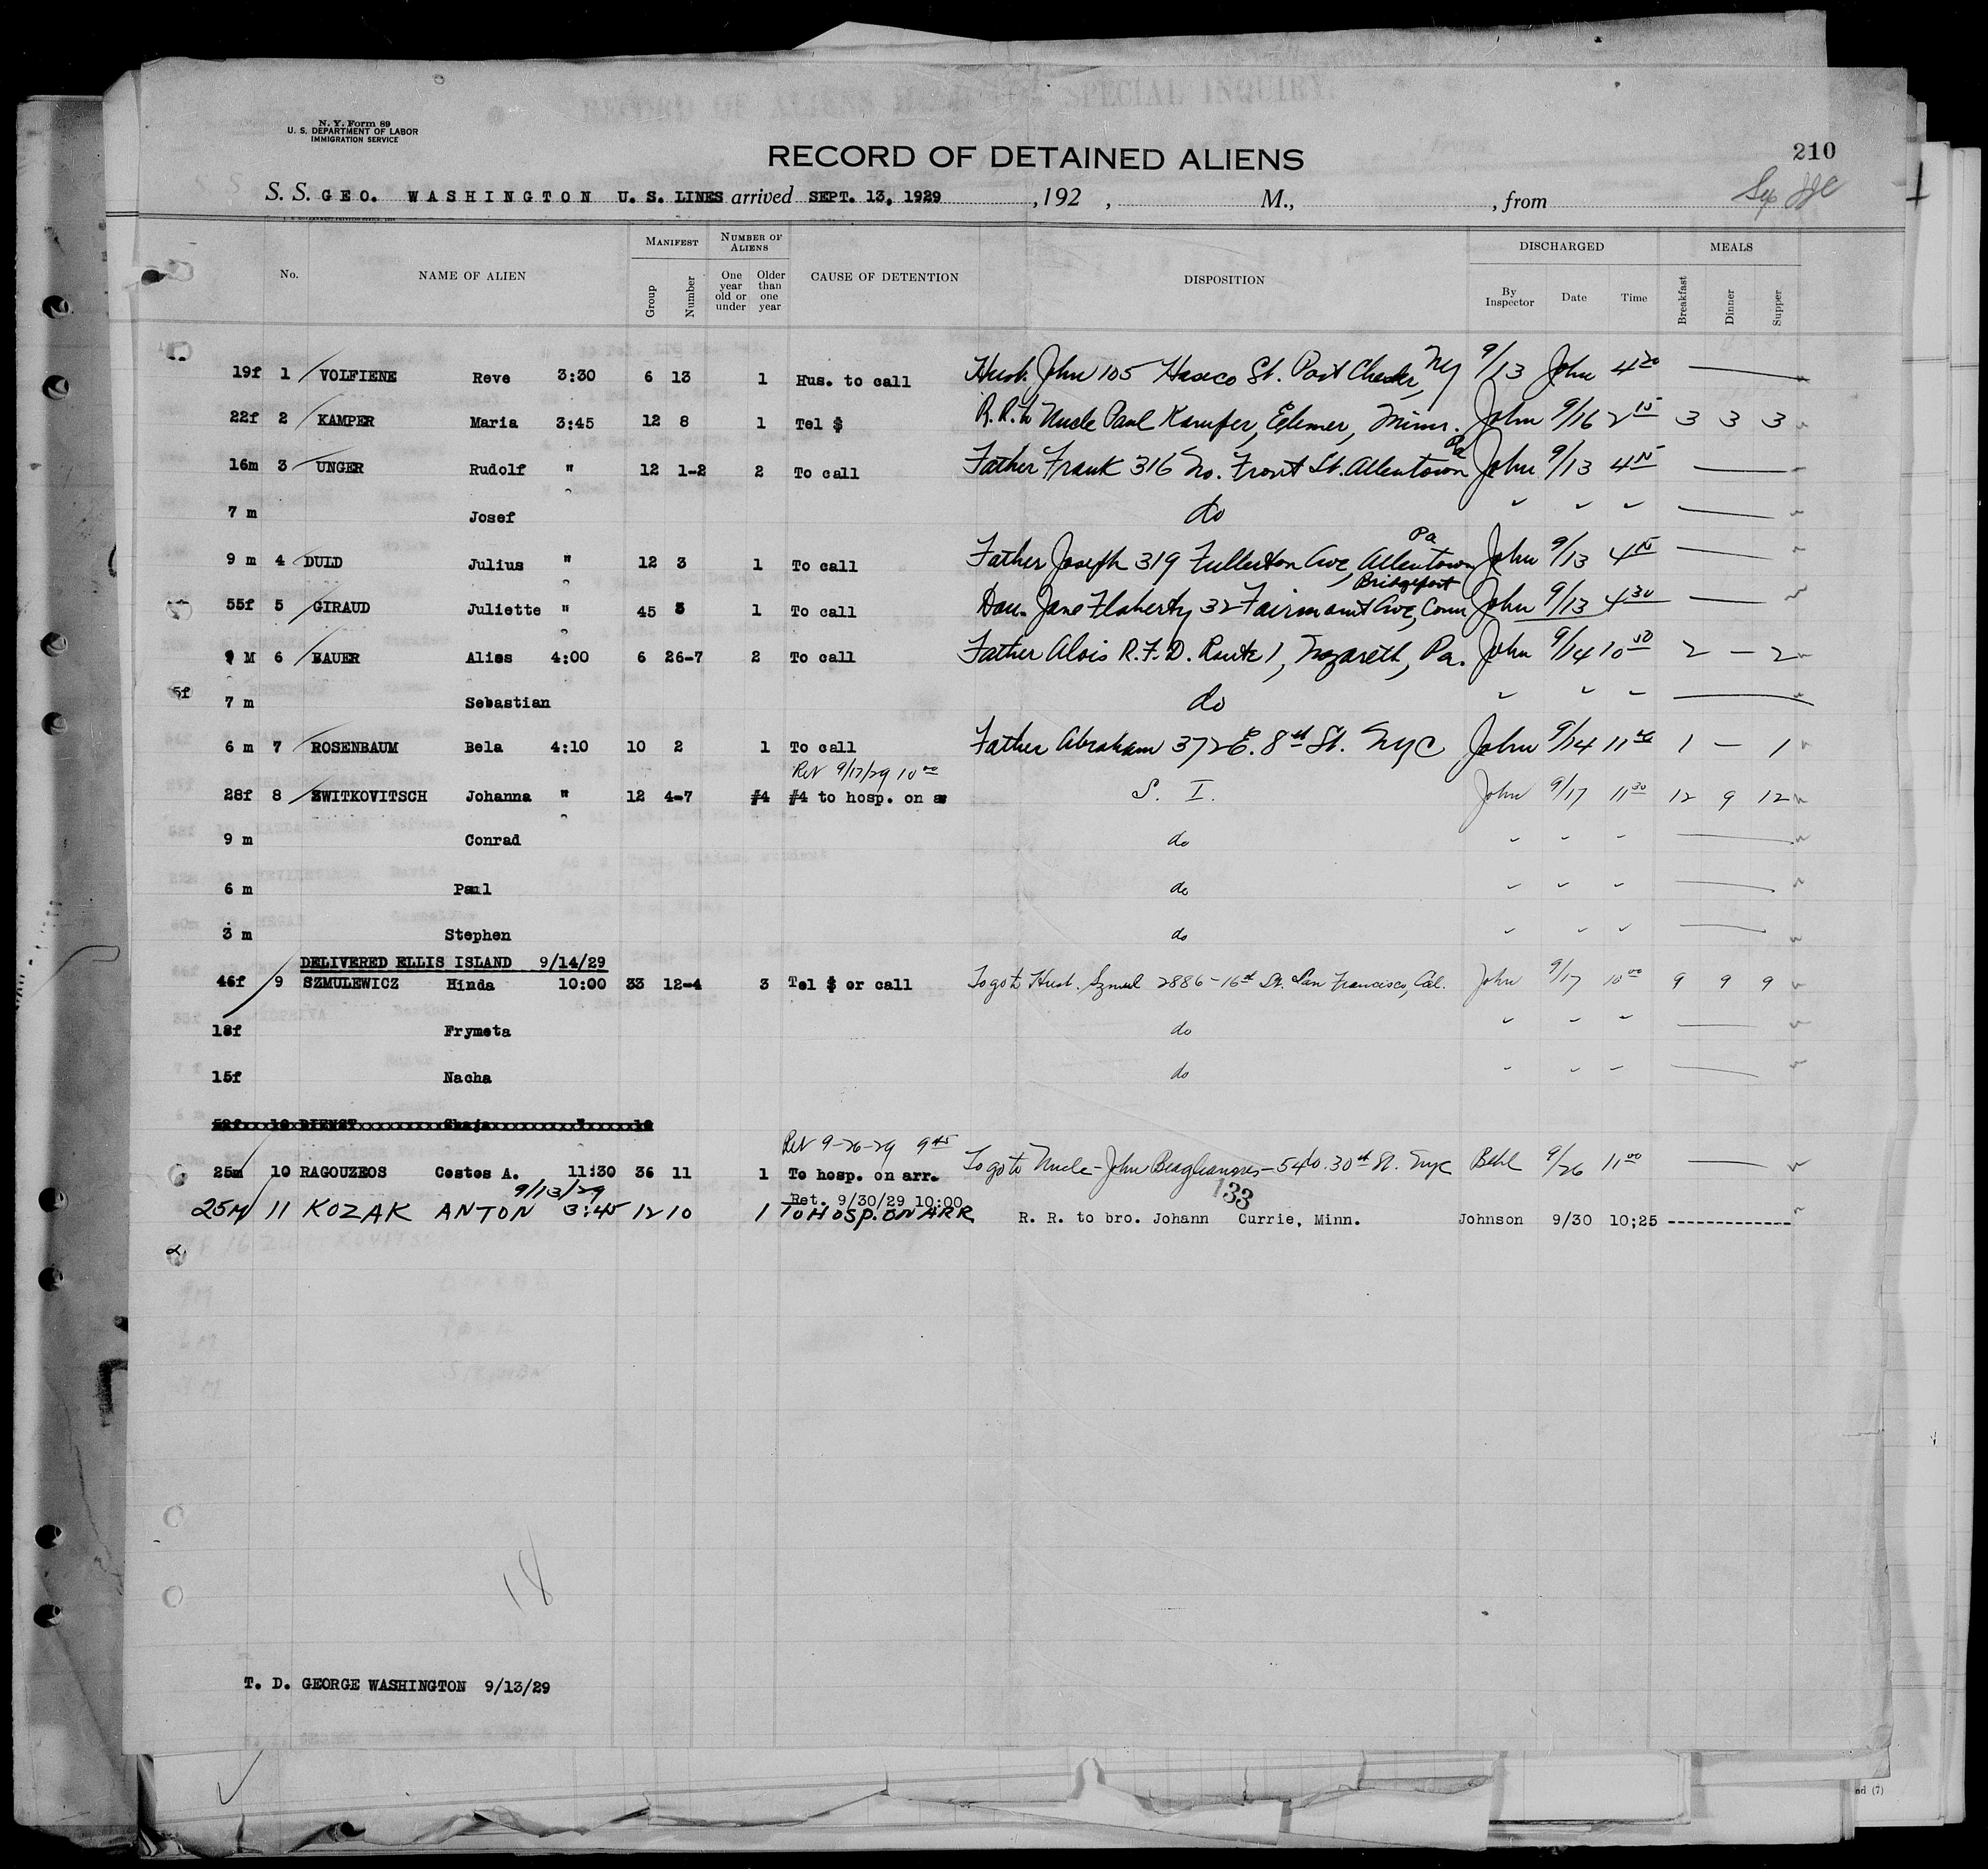 N. Y. Form 89
U. S. DEPARTMENT OF LABOR
IMMIGRATION SERVICE
RECORD OF ALIENS HELD FOR SPECIAL INQUIRY.
RECORD OF DETAINED ALIENS
210
S. S. GEO. WASHINGTON U. S. LINES arrived SEPT. 13, 1929 , 192 , M., , from
No. NAME OF ALIEN MANIFEST NUMBER OF ALIENS CAUSE OF DETENTION DISPOSITION DISCHARGED MEALS
Group Number One year old or under Older than one year By Inspector Date Time Breakfast Dinner Supper
19f 1 VOLFIENE Reve 3:30 6 13 1 Hus. to call Husb. John 105 Haseco St. Port Chester, NY 9/13 John 4 20
22f 2 KAMPER Maria 3:45 12 8 1 Tel $ R.R. to Uncle Paul Kamper, Minn. John 9/16 2 15 3 3 3
16m 3 UNGER Rudolf " 12 1-2 2 To call Father Frank 316 No. Front St. Allentown Pa John 9/13 4 15
7 m Josef do
9 m 4 DULD Julius " 12 3 1 To call Father Joseph 319 Fullerton Ave, Allentown Pa John 9/13 4 15
55f 5 GIRAUD Juliette " 45 5 1 To call Dau. Jane Flaherty 32 Fairmount Ave, Bridgeport Conn John 9/13 4 30
9 M 6 BAUER Alies 4:00 6 26-7 2 To call Father Alois R.F.D. Route 1, Nazareth, Pa. John 9/14 10 50 2 — 2
5f
7 m Sebastian do
6 m 7 ROSENBAUM Bela 4:10 10 2 1 To call Father Abraham 372 E. 8th St. NYC John 9/14 11 1 — 1
Ret 9/17/29 10 00
28f 8 ZWITKOVITSCH Johanna " 12 4-7 #4 #4 to hosp. on a S. I. John 9/17 11 30 12 9 12
9 m Conrad do
6 m Paul do
3 m Stephen do
DELIVERED ELLIS ISLAND 9/14/29
46f 9 SZMULEWICZ Hinda 10:00 33 12-4 3 Tel $ or call To go to Husb. Szmul 2886-16th St. San Francisco, Cal. John 9/17 10 00 9 9 9
18f Frymeta do
15f Nacha do
52f 10 DIENST Chaja " 10
Ret 9-26-29 9 45
25m 10 RAGOUZEOS Costos A. 11:30 36 11 1 To hosp. on arr. To go to Uncle - John 30th St. NYC 9/26 11 00
9/13/29 Ret. 9/30/29 10:00 133
25M 11 KOZAK ANTON 3:45 12 10 1 TO HOSP. ON ARR R. R. to bro. Johann Currie, Minn. Johnson 9/30 10;25 --------------
18
T. D. GEORGE WASHINGTON 9/13/29
nd (7)